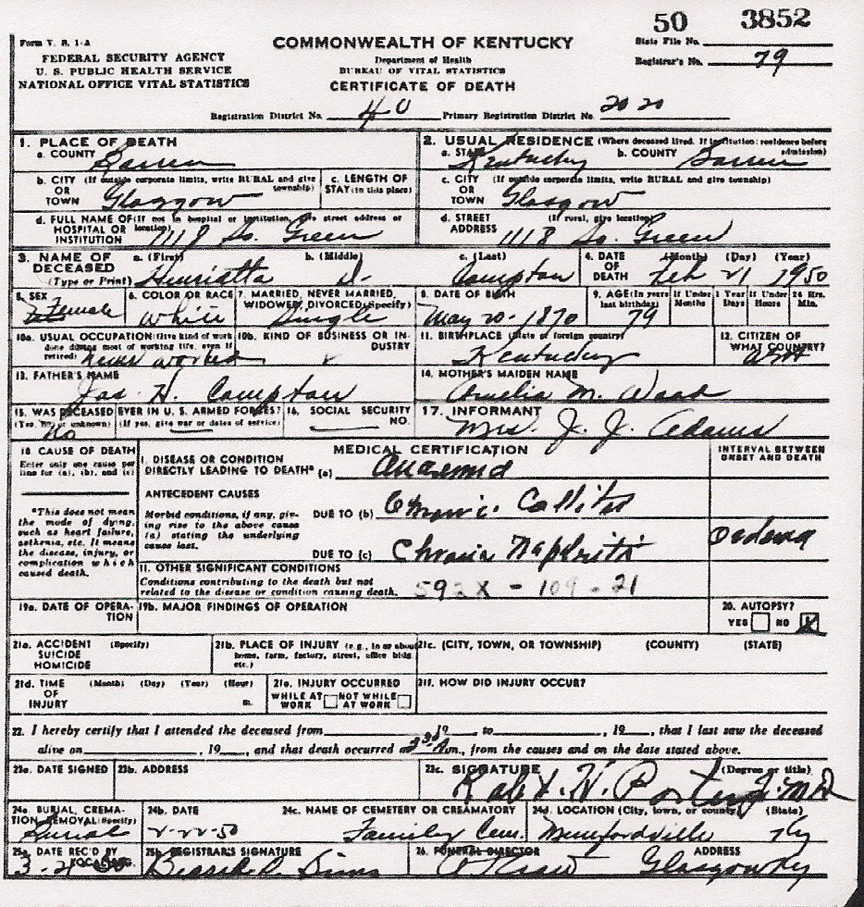 50 3852
Form V. S. 1-A
COMMONWEALTH OF KENTUCKY
State File No.
FEDERAL SECURITY AGENCY
Department of Health
Registrar's No. 79
U. S. PUBLIC HEALTH SERVICE
BUREAU OF VITAL STATISTICS
NATIONAL OFFICE VITAL STATISTICS
CERTIFICATE OF DEATH
Registration District No. 40 Primary Registration District No. 2020
1. PLACE OF DEATH
a. COUNTY Barren
2. USUAL RESIDENCE (Where deceased lived. If institution: residence before admission)
a. STATE Kentucky b. COUNTY Barren
b. CITY (If outside corporate limits, write RURAL and give township) OR TOWN Glasgow
c. LENGTH OF STAY (in this place)
c. CITY (If outside corporate limits, write RURAL and give township) OR TOWN Glasgow
d. FULL NAME OF (If not in hospital or institution, give street address or location) HOSPITAL OR INSTITUTION 1118 So. Green
d. STREET ADDRESS (If rural, give location) 1118 So. Green
3. NAME OF DECEASED (Type or Print) a. (First) Henrietta b. (Middle) c. (Last) Compton
4. DATE OF DEATH (Month) (Day) (Year) Feb 21 1950
5. SEX Female
6. COLOR OR RACE White
7. MARRIED, NEVER MARRIED, WIDOWED, DIVORCED (Specify) Single
8. DATE OF BIRTH May 20-1870
9. AGE (In years last birthday) 79 If Under 1 Year Months Days If Under 24 Hrs. Hours Min.
10a. USUAL OCCUPATION (Give kind of work done during most of working life, even if retired) never worked
10b. KIND OF BUSINESS OR INDUSTRY
11. BIRTHPLACE (State or foreign country) Kentucky
12. CITIZEN OF WHAT COUNTRY?
13. FATHER'S NAME Jas. H. Compton
14. MOTHER'S MAIDEN NAME Amelia M. Wood
15. WAS DECEASED EVER IN U. S. ARMED FORCES? (Yes, no, or unknown) (If yes, give war or dates of service) No
16. SOCIAL SECURITY NO.
17. INFORMANT Mrs. J. J. Adams
18. CAUSE OF DEATH
Enter only one cause per line for (a), (b), and (c)
*This does not mean the mode of dying, such as heart failure, asthenia, etc. It means the disease, injury, or complication which caused death.
MEDICAL CERTIFICATION
INTERVAL BETWEEN ONSET AND DEATH
I. DISEASE OR CONDITION DIRECTLY LEADING TO DEATH* (a)
ANTECEDENT CAUSES
Morbid conditions, if any, giving rise to the above cause (a) stating the underlying cause last.
DUE TO (b) Chronic
DUE TO (c) Chronic Nephritis
Oedema
II. OTHER SIGNIFICANT CONDITIONS
Conditions contributing to the death but not related to the disease or condition causing death. 592X - 109 - 21
19a. DATE OF OPERATION
19b. MAJOR FINDINGS OF OPERATION
20. AUTOPSY? YES NO
21a. ACCIDENT SUICIDE HOMICIDE (Specify)
21b. PLACE OF INJURY (e.g., in or about home, farm, factory, street, office bldg. etc.)
21c. (CITY, TOWN, OR TOWNSHIP) (COUNTY) (STATE)
21d. TIME OF INJURY (Month) (Day) (Year) (Hour) m.
21e. INJURY OCCURRED WHILE AT WORK NOT WHILE AT WORK
21f. HOW DID INJURY OCCUR?
22. I hereby certify that I attended the deceased from , 19 to , 19 , that I last saw the deceased
alive on , 19 , and that death occurred at m., from the causes and on the date stated above.
23a. DATE SIGNED
23b. ADDRESS
23c. SIGNATURE (Degree or title) Porter
24a. BURIAL, CREMATION, REMOVAL (Specify) Burial
24b. DATE 2-22-50
24c. NAME OF CEMETERY OR CREMATORY Family Cem.
24d. LOCATION (City, town, or county) (State) Munfordville Ky
25a. DATE REC'D BY LOCAL REG.
25b. REGISTRAR'S SIGNATURE
26. FUNERAL DIRECTOR ADDRESS Glasgow Ky